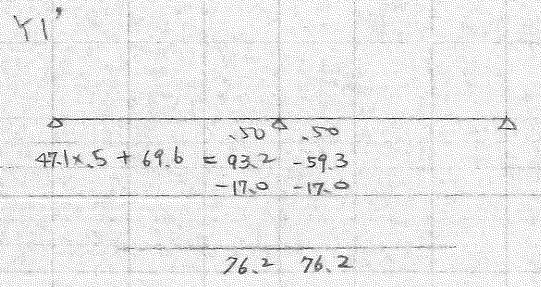 Y1'
.50 .50
47.1 x .5 + 69.6 = 93.2 -59.3
-17.0 -17.0
76.2 76.2